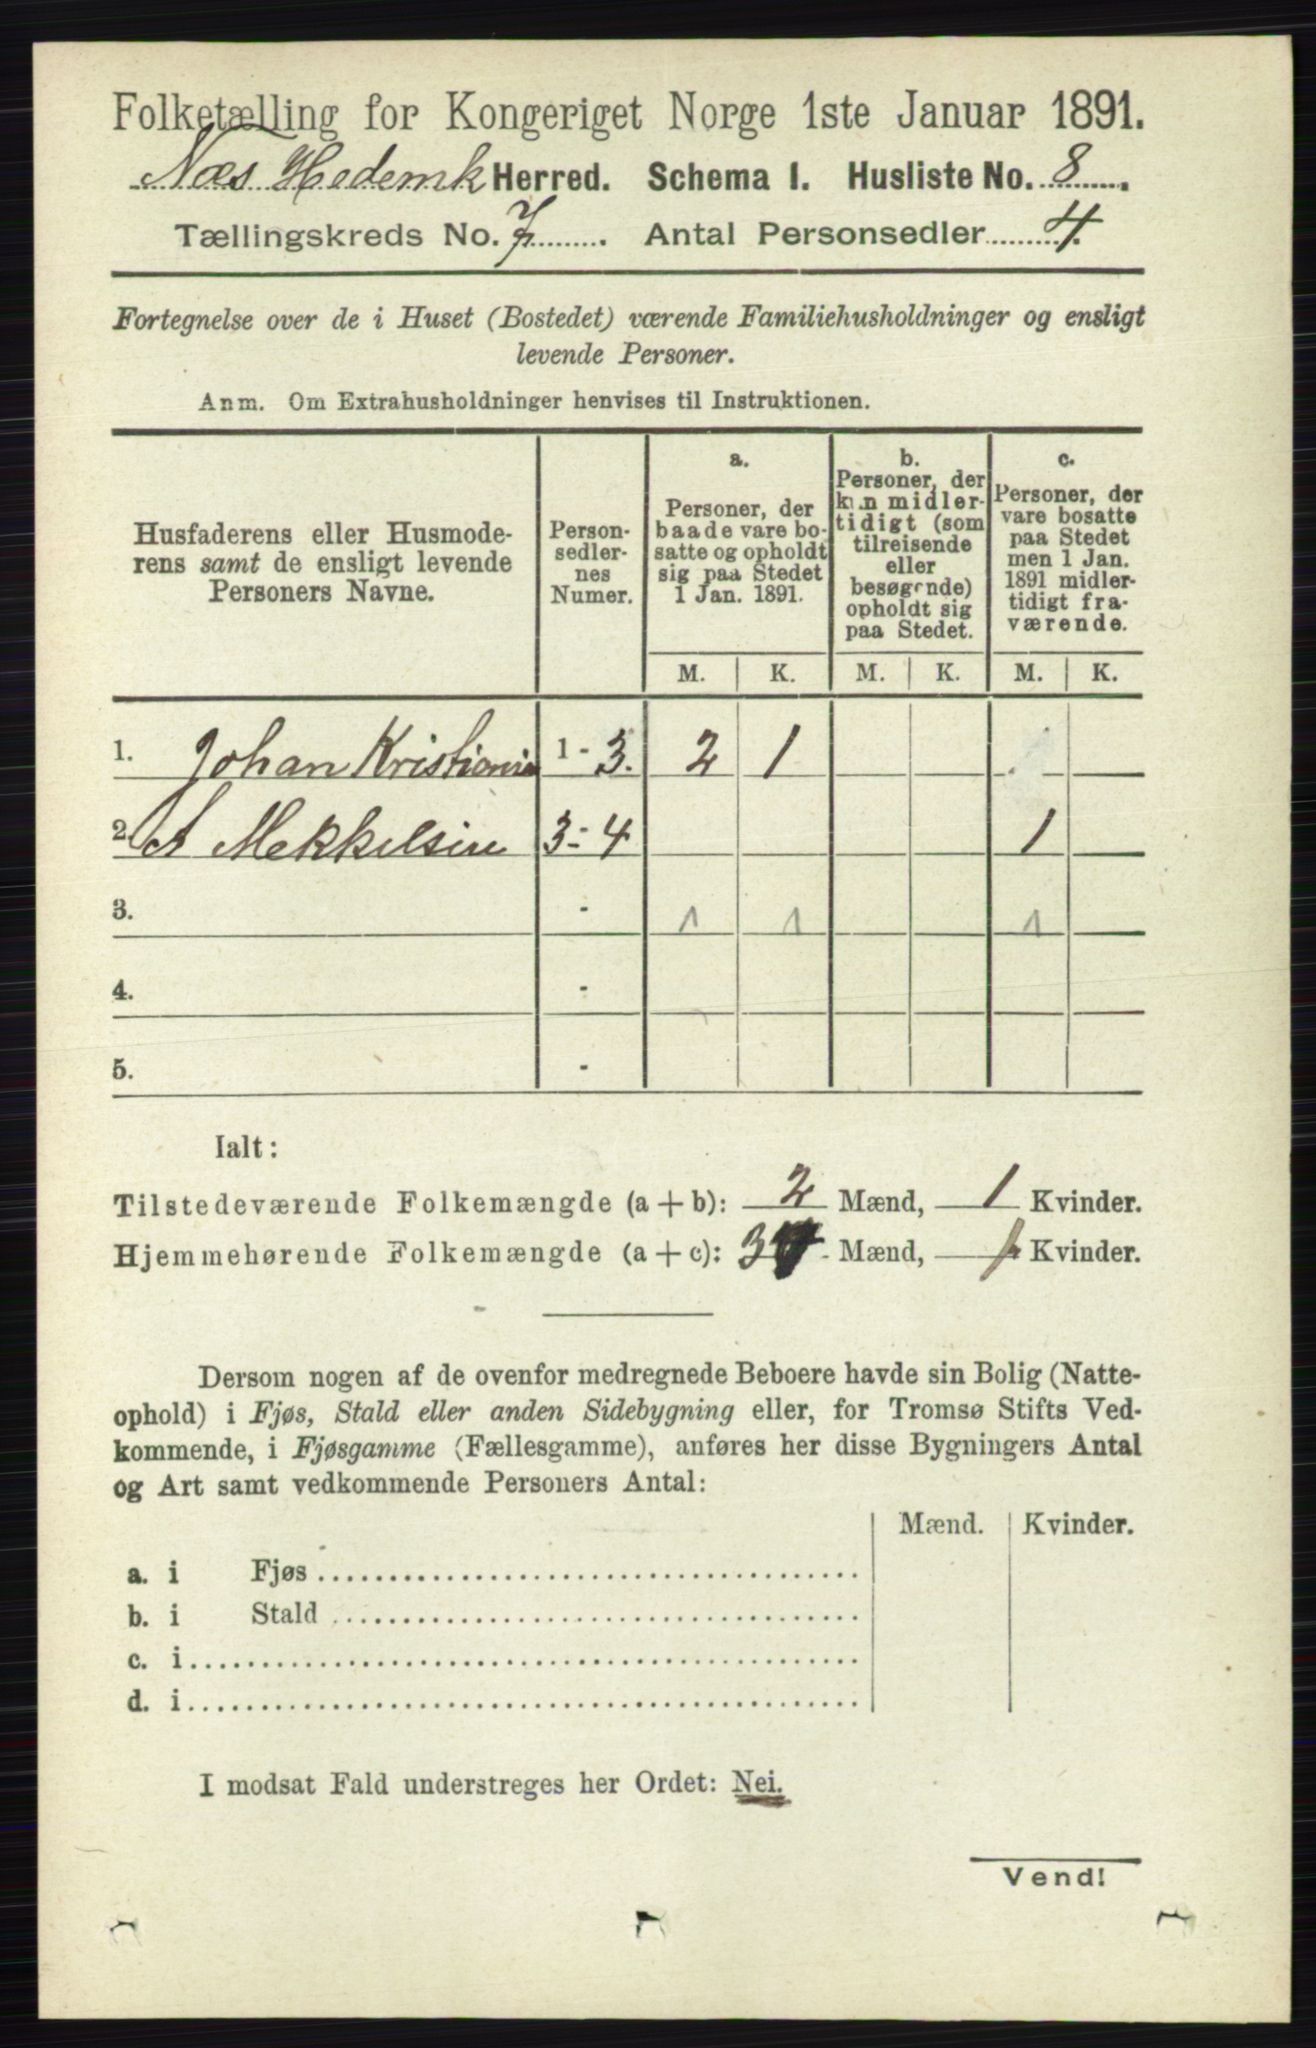 Folketælling for Kongeriget Norge 1ste Januar 1891.
Næs Hedemk Herred. Schema I. Husliste No. 8.
Tællingskreds No. 7. Antal Personsedler 4.
Fortegnelse over de i Huset (Bostedet) værende Familiehusholdninger og ensligt
levende Personer.
Anm. Om Extrahusholdninger henvises til Instruktionen.
Husfaderens eller Husmode-
rens samt de ensligt levende
Personers Navne.
Person-
sedler-
nes
Numer.
a.
Personer, der
baade vare bo-
satte og opholdt
sig paa Stedet
1 Jan. 1891.
b.
Personer, der
kun midler-
tidigt (som
tilreisende
eller
besøgende)
opholdt sig
paa Stedet.
c.
Personer, der
vare bosatte
paa Stedet
men 1 Jan.
1891 midler-
tidigt fra-
værende.
M. K. M. K. M. K.
1. Johan 1 - 3. 2 1
2. A Mekkelsen 3 - 4 1
3. - 1 1 1
4. -
5. -
Ialt:
Tilstedeværende Folkemængde (a + b): 2 Mænd, 1 Kvinder.
Hjemmehørende Folkemængde (a + c): 3 Mænd, 1 Kvinder.
Dersom nogen af de ovenfor medregnede Beboere havde sin Bolig (Natte-
ophold) i Fjøs, Stald eller anden Sidebygning eller, for Tromsø Stifts Ved-
kommende, i Fjøsgamme (Fællesgamme), anføres her disse Bygningers Antal
og Art samt vedkommende Personers Antal:
Mænd. Kvinder.
a. i Fjøs
b. i Stald
c. i
d. i
I modsat Fald understreges her Ordet: Nei.
Vend!